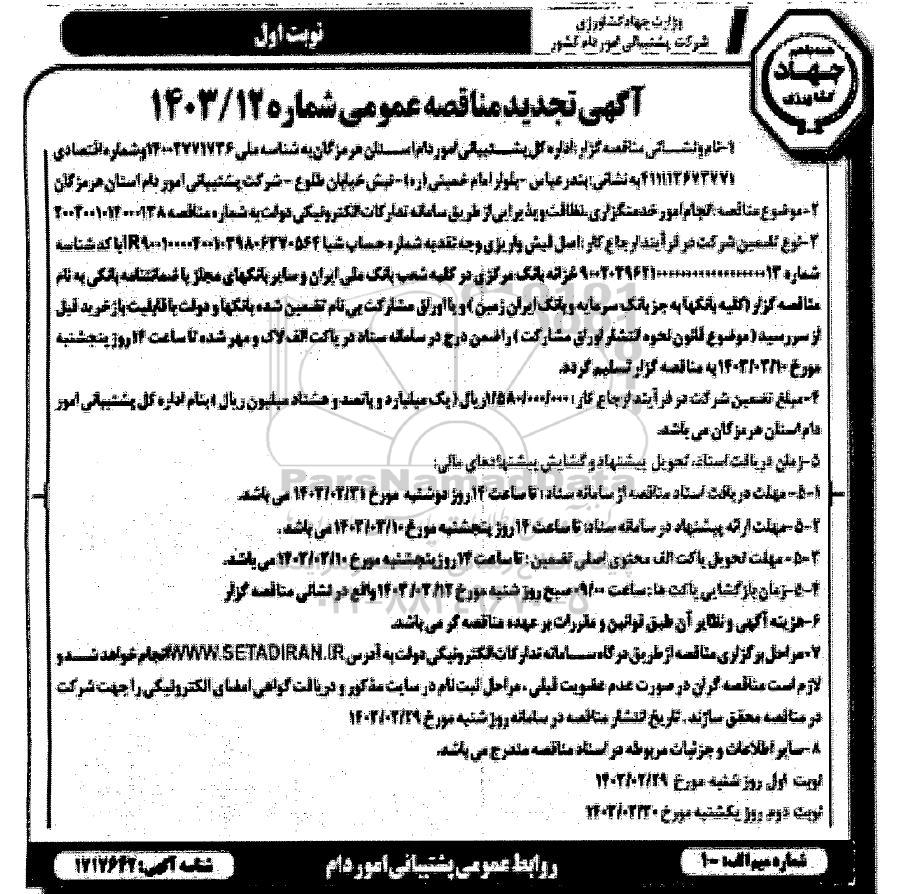 وزارت جهاد کشاورزی
شرکت پشتیبانی امور دام کشور
نوبت اول
جهاد
کشاورزی
آگهی تجدید مناقصه عمومی شماره ۱۴۰۳/۱۲
۱-نام و نشانی مناقصه گزار: اداره کل پشتیبانی امور دام استان هرمزگان به شناسه ملی ۱۴۰۰۲۷۷۱۷۳۶ و شماره اقتصادی
۴۱۱۱۱۳۶۷۳۷۷۱ به نشانی: بندرعباس -بلوار امام خمینی (ره)- نبش خیابان طلوع - شرکت پشتیبانی امور دام استان هرمزگان
۲-موضوع مناقصه: انجام امور خدمتگزاری، نظافت و پذیرایی از طریق سامانه تدارکات الکترونیکی دولت به شماره مناقصه ۲۰۰۳۰۰۱۰۱۴۰۰۰۱۳۸
۳-نوع تضمین شرکت در فرآیند ارجاع کار: اصل فیش واریزی وجه نقد به شماره حساب شبا IR۹۰۰۱۰۰۰۰۴۰۰۱۰۳۹۸۰۶۳۷۰۵۶۴ با کد شناسه
شماره خزانه بانک مرکزی در کلیه شعب بانک ملی ایران و سایر بانکهای مجاز یا ضمانتنامه بانکی به نام
مناقصه گزار (کلیه بانکها به جز بانک سرمایه و بانک ایران زمین) و یا اوراق مشارکت بی نام تضمین شده بانکها و دولت با قابلیت بازخرید قبل
از سررسید (موضوع قانون نحوه انتشار اوراق مشارکت) را ضمن درج در سامانه ستاد در پاکت الف لاک و مهر شده تا ساعت ۱۴ روز پنجشنبه
مورخ ۱۴۰۳/۰۳/۱۰ به مناقصه گزار تسلیم گردد.
۴-مبلغ تضمین شرکت در فرآیند ارجاع کار: ۱/۵۸۰/۰۰۰/۰۰۰ ریال (یک میلیارد و پانصد و هشتاد میلیون ریال) بنام اداره کل پشتیبانی امور
دام استان هرمزگان می باشد.
۵-زمان دریافت اسناد، تحویل پیشنهاد و گشایش پیشنهادهای مالی:
۵-۱- مهلت دریافت اسناد مناقصه از سامانه ستاد: تا ساعت ۱۴ روز دوشنبه مورخ ۱۴۰۳/۰۲/۳۱ می باشد.
۵-۲-مهلت ارائه پیشنهاد در سامانه ستاد: تا ساعت ۱۴ روز پنجشنبه مورخ ۱۴۰۳/۰۳/۱۰ می باشد.
۵-۳- مهلت تحویل پاکت الف محتوی اصلی تضمین: تا ساعت ۱۴ روز پنجشنبه مورخ ۱۴۰۳/۰۳/۱۰ می باشد.
۵-۴-زمان بازگشایی پاکت ها: ساعت ۰۹/۰۰ صبح روز شنبه مورخ ۱۴۰۳/۰۳/۱۲ واقع در نشانی مناقصه گزار
۶-هزینه آگهی و نظایر آن طبق قوانین و مقررات بر عهده مناقصه گر می باشد.
۷-مراحل برگزاری مناقصه از طریق درگاه سامانه تدارکات الکترونیکی دولت به آدرس WWW.SETADIRAN.IR انجام خواهد شد و
لازم است مناقصه گران در صورت عدم عضویت قبلی، مراحل ثبت نام در سایت مذکور و دریافت گواهی امضای الکترونیکی را جهت شرکت
در مناقصه محقق سازند. تاریخ انتشار مناقصه در سامانه روز شنبه مورخ ۱۴۰۳/۰۲/۲۹
۸-سایر اطلاعات و جزئیات مربوطه در اسناد مناقصه مندرج می باشد.
نوبت اول روز شنبه مورخ ۱۴۰۳/۰۲/۲۹
نوبت دوم روز یکشنبه مورخ ۱۴۰۳/۰۲/۳۰
شماره میم الف: ۱۰۰
روابط عمومی پشتیبانی امور دام
شناسه آگهی: ۱۷۱۷۶۴۲
ParsNamadData
۰۲۱-۸۸۳۴۹۶۷۰-۵